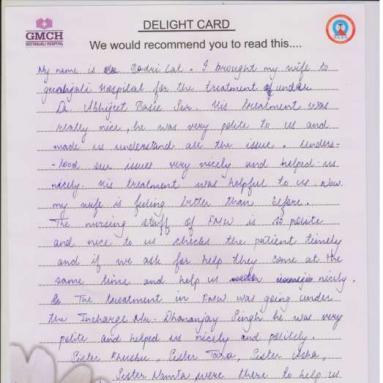 GMCH
GEETANJALI HOSPITAL
DELIGHT CARD
We would recommend you to read this....
My name is Badri Lal. I brought my wife to
geetanjali Hospital for the treatment of under
Dr. Abhijeet Basie Sir. His treatment was
really nice, he was very polite to us and
made us understand all the issue. Unders-
-tood our issues very nicely and helped us
nicely. His treatment was helpful to us. Now
my wife is feeling better than before.
The nursing staff of FMW is so polite
and nice to us checks the patient timely
and if we ask for help they come at the
same time and help us nicely.
The treatment in FMW was going under
the Incharge Mr. Dhananjay Singh he was very
polite and helped us nicely and politely.
Sister Khushbu, Sister Tara, Sister Asha,
Sister Namta were there to help us